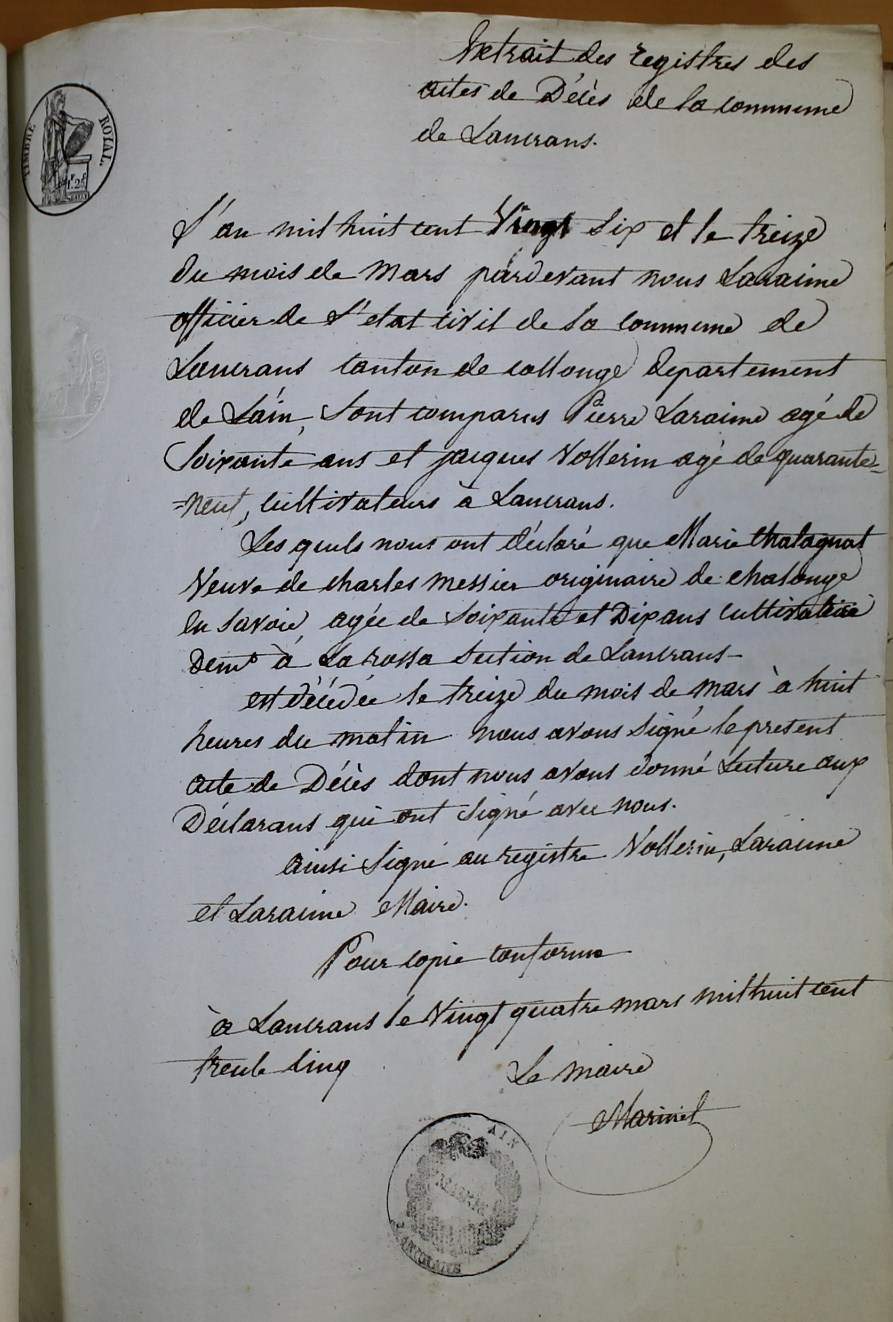 Extrait des registres des
actes de Décès de la commune
de Lancrans.
TIMBRE ROYAL.
L'an mil huit cent Vingt Six et le treize
du mois de Mars pardevant nous Laraime
officier de l'etat civil de la commune de
Lancrans canton de collonge departement
de Láin, Sont comparus Pierre Laraime agé de
Soixante ans et jacques Vollerin agé de quarante=
=neuf, cultivateurs à Lancrans.
Les quels nous ont déclaré que Marie Chatagnat
Veuve de charles messier originaire de chalonge
en Savoie agée de Soixante et Dix ans cultivatrice
Demt à La rossa Section de Lancrans-
est décédée le treize du mois de mars à huit
heures du matin nous avons Signé le present
acte de Décès dont nous avons donné Lecture aux
Déclarans qui ont Signé avec nous.
ainsi Signé au registre Vollerin, Laraime
et Laraime Maire.
Pour copie conforme
à Lancrans le Vingt quatre mars mil huit cent
trente cinq
Le maire
Marinet
AIN